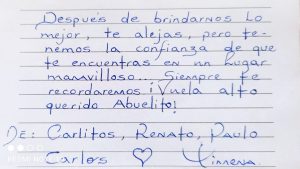 Después de brindarnos lo
mejor, te alejas, pero te-
nemos la confianza de que
te encuentras en un lugar
maravilloso... Siempre te
recordaremos ¡Vuela alto
querido Abuelito!
De: Carlitos, Renato, Paulo
Carlos ♡ Ximena.